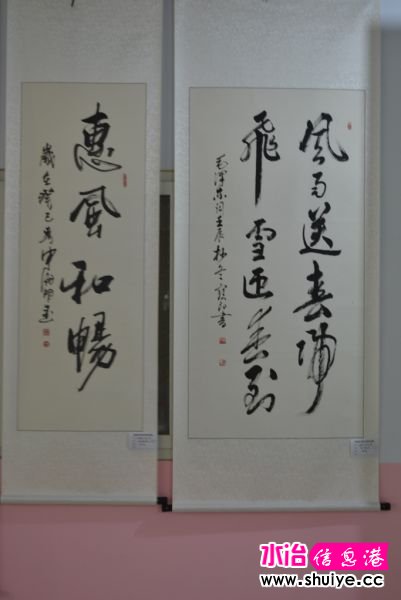 風雨送春歸
飛雪迎春到
毛澤東詞壬辰 書
惠風和暢
歲在癸巳
水冶信息港
www.shuiye.cc